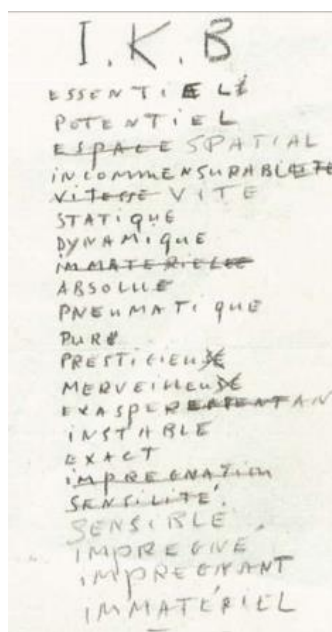 I.K.B
ESSENTIEL
POTENTIEL
ESPACE SPATIAL
INCOMMENSURABLE
VITESSE VITE
STATIQUE
DYNAMIQUE
IMMATERIELLE
ABSOLUE
PNEUMATIQUE
PURE
PRESTIGIEUSE
MERVEILLEUSE
EXASPEREMENTAN
INSTABLE
EXACT
IMPREGNATION
SENSILITÉ.
SENSIBLE
IMPREGNÉ
IMPREGNANT
IMMATÉRIEL